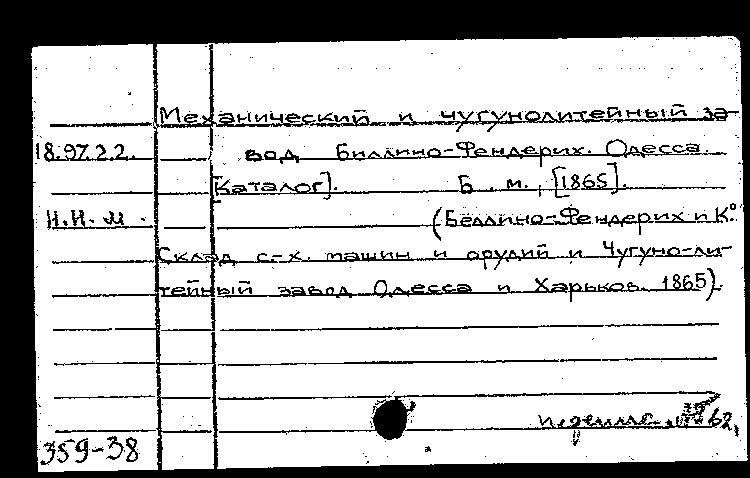 Механический и чугунолитейный за-
18.97.2.2. вод Биллино-Фендерих. Одесса.
[Каталог]. Б. м., [1865].
Н.Н.м. (Беллино-Фендерих и К°.
Склад с-х. машин и орудий и Чугуно-ли-
тейный завод Одесса и Харьков. 1865).
62,
359-38